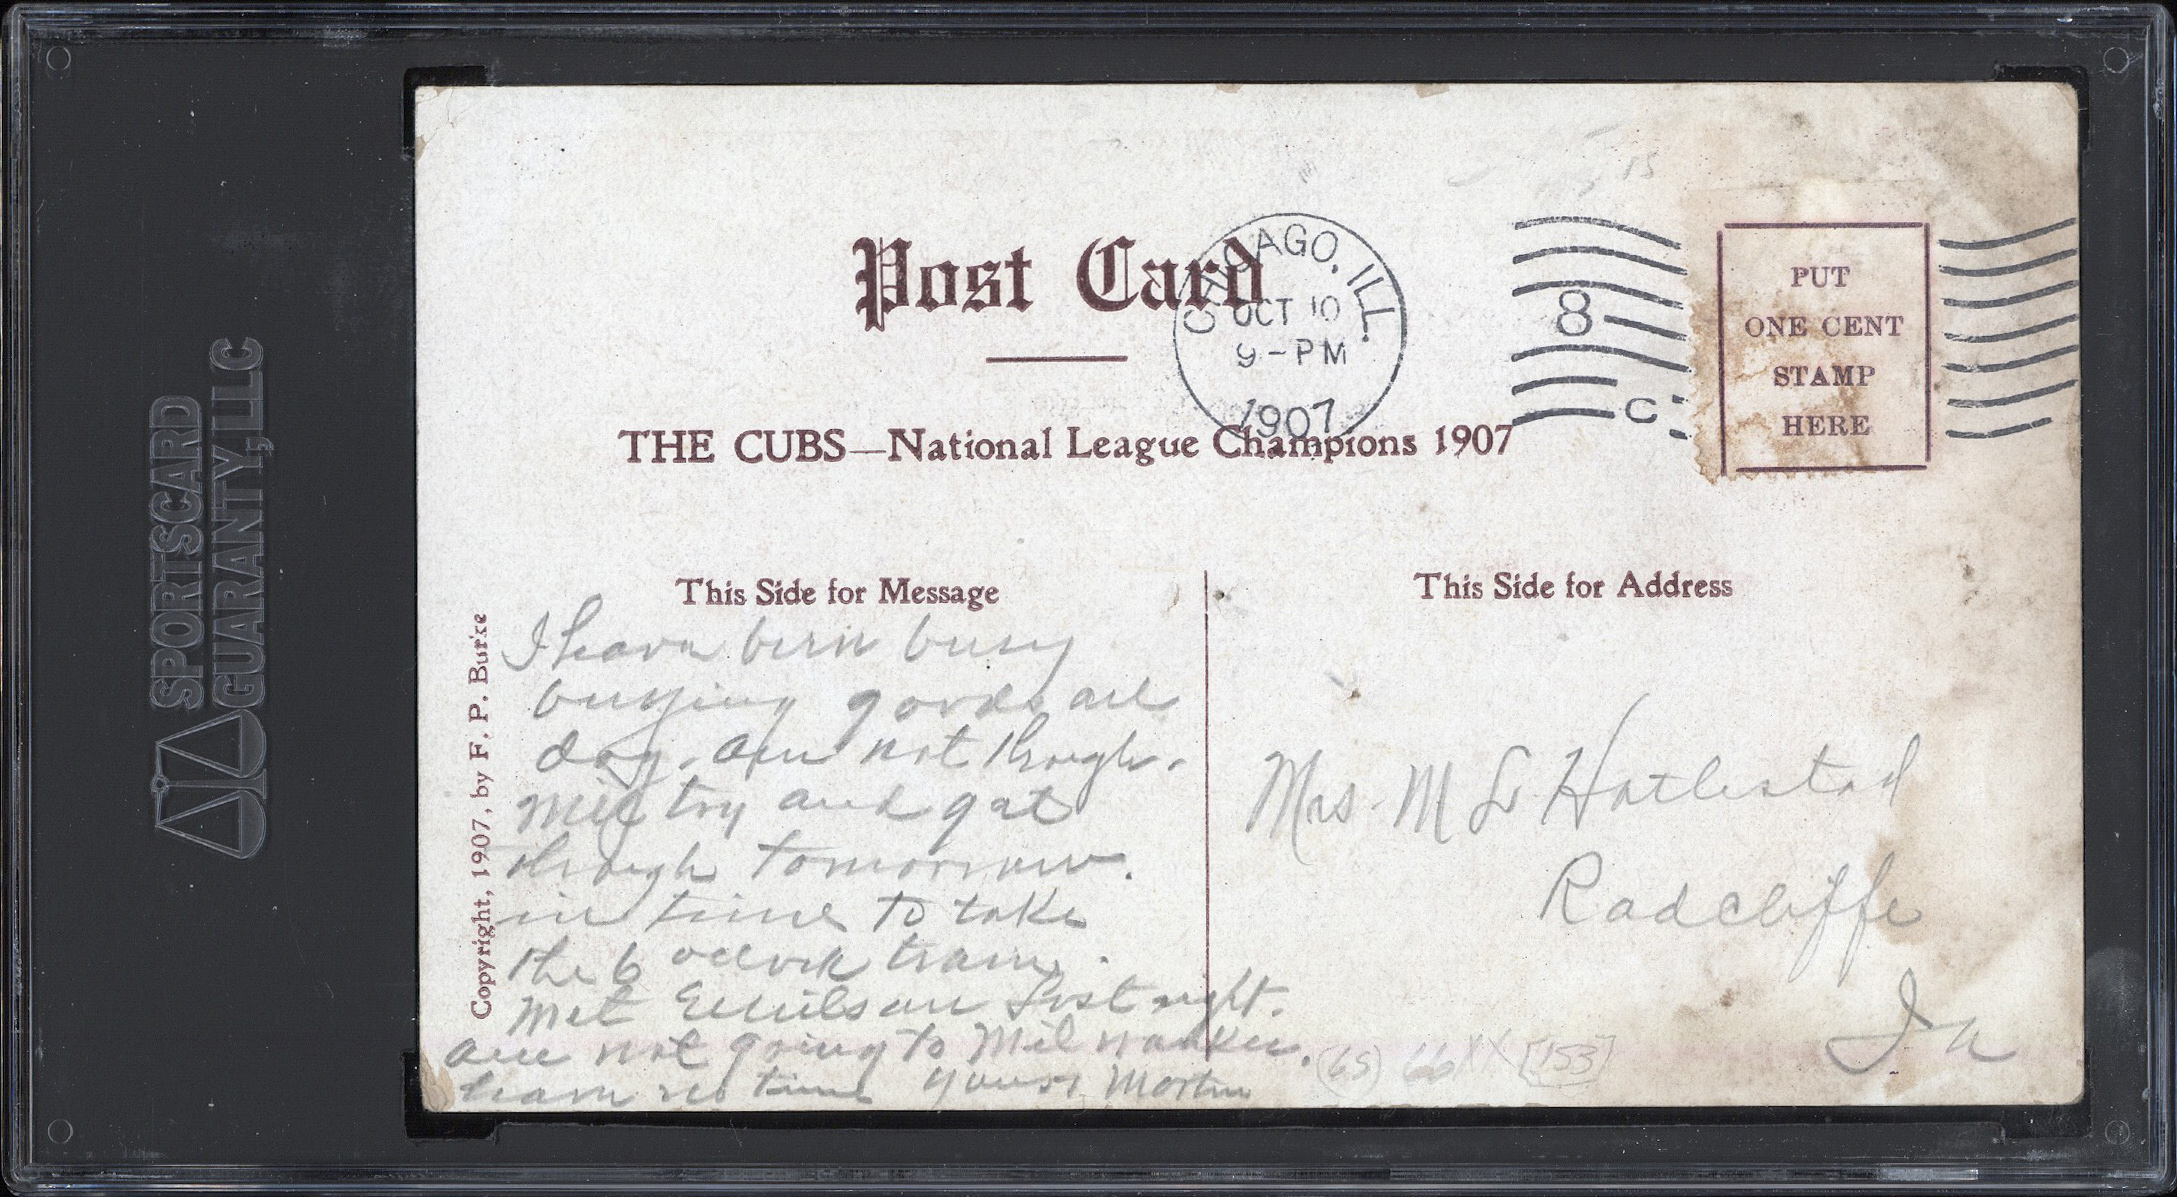 Post Card
CHICAGO, ILL.
OCT 10
9-PM
1907
8
C
PUT
ONE CENT
STAMP
HERE
THE CUBS—National League Champions 1907
This Side for Message
This Side for Address
Copyright, 1907, by F. P. Burke
I have been busy
buying goods all
day. am not through.
Will try and get
through tomorrow.
in time to take
the 6 oclock train.
Met last night.
am not going to Milwaukee.
have no time yours Martin
Mrs. M L
Radcliffe
Ia
(65) 66 XX [153]
15
SPORTSCARD
GUARANTY, LLC